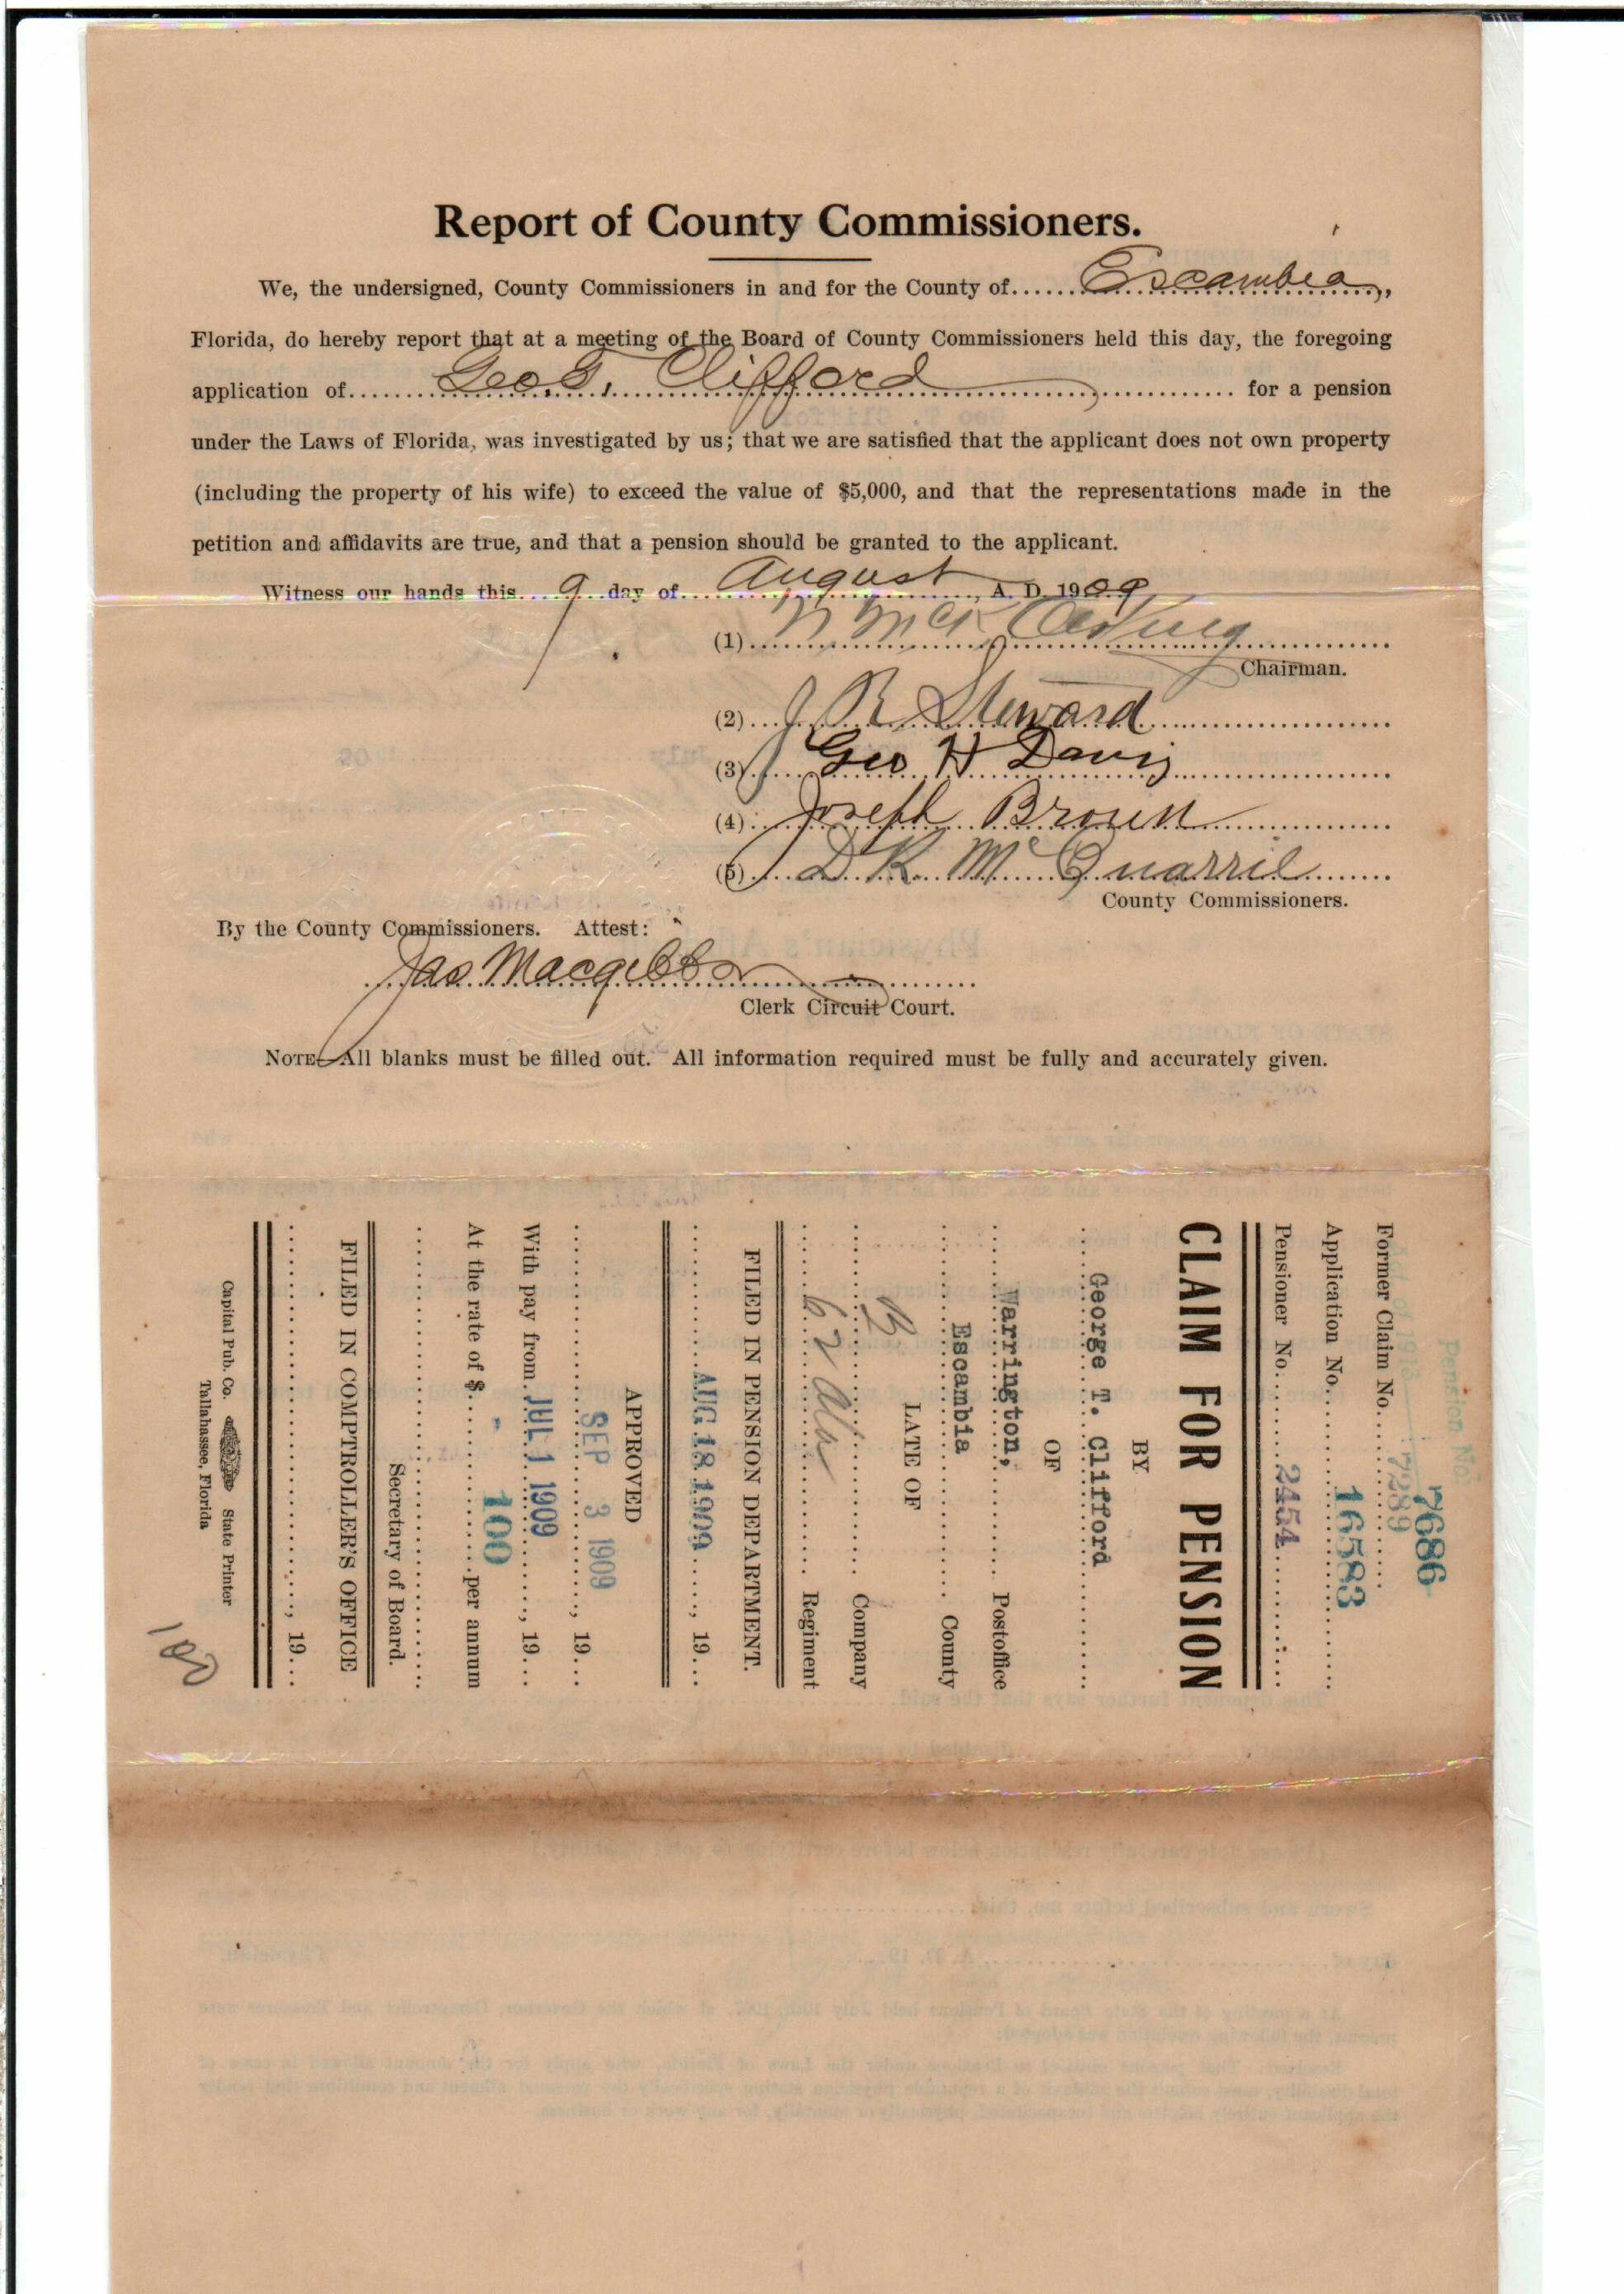 Report of County Commissioners.
We, the undersigned, County Commissioners in and for the County of......Escambia,
Florida, do hereby report that at a meeting of the Board of County Commissioners held this day, the foregoing
application of........Geo. T. Clifford........ for a pension
under the Laws of Florida, was investigated by us; that we are satisfied that the applicant does not own property
(including the property of his wife) to exceed the value of $5,000, and that the representations made in the
petition and affidavits are true, and that a pension should be granted to the applicant.
Witness our hands this....9...day of....August........, A. D. 1909
(1)
Chairman.
(2)...J. R. Steward
(3)...Geo H Davis
(4)...Joseph Brown
(5)...D K McQuarrie
County Commissioners.
By the County Commissioners. Attest:
Jas Macgibbon
Clerk Circuit Court.
NOTE—All blanks must be filled out. All information required must be fully and accurately given.
Pension No.
7686
Former Claim No......7289
Application No......16583
Pensioner No......2454
CLAIM FOR PENSION
BY
George T. Clifford
OF
Warrington, Postoffice
Escambia County
LATE OF
B Company
62 Ala Regiment
FILED IN PENSION DEPARTMENT.
AUG 18 1909, 19...
APPROVED
SEP 3 1909, 19...
With pay from JUL 1 1909, 19...
At the rate of $ 100 per annum
Secretary of Board.
FILED IN COMPTROLLER'S OFFICE
, 19...
Capital Pub. Co. State Printer
Tallahassee, Florida